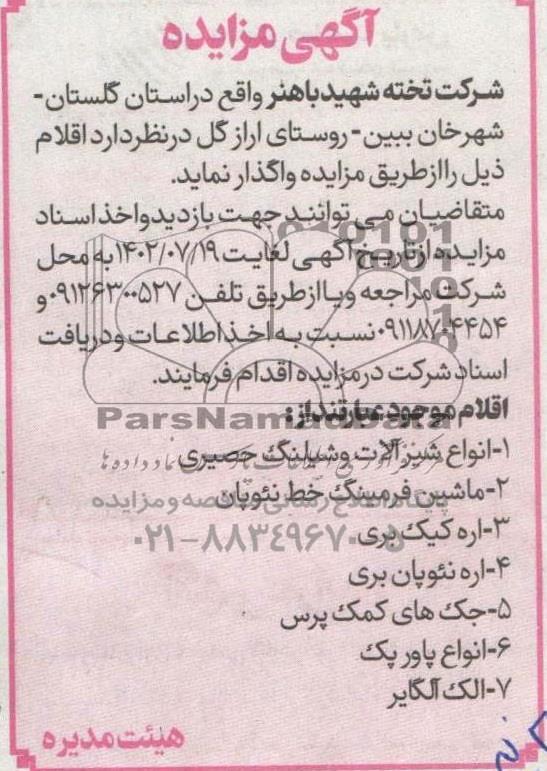 آگهی مزایده
شرکت تخته شهید باهنر واقع در استان گلستان-
شهر خان ببین- روستای اراز گل در نظر دارد اقلام
ذیل را از طریق مزایده واگذار نماید.
متقاضیان می توانند جهت بازدید و اخذ اسناد
مزایده از تاریخ آگهی لغایت ۱۴۰۲/۰۷/۱۹ به محل
شرکت مراجعه و یا از طریق تلفن ۰۹۱۲۶۳۰۰۵۲۷ و
۰۹۱۱۸۷۰۴۴۵۴ نسبت به اخذ اطلاعات و دریافت
اسناد شرکت در مزایده اقدام فرمایند.
اقلام موجود عبارتند از:
ParsNamadData
۱-انواع شیرآلات و شیلنگ حصیری
۲-ماشین فرمینگ خط نئوپان
پایگاه اطلاع رسانی مناقصه و مزایده
۳-اره کیک بری
۰۲۱-۸۸۳۴۹۶۷۰-۵
۴-اره نئوپان بری
۵-جک های کمک پرس
۶-انواع پاور پک
۷-الک آلگایر
هیئت مدیره